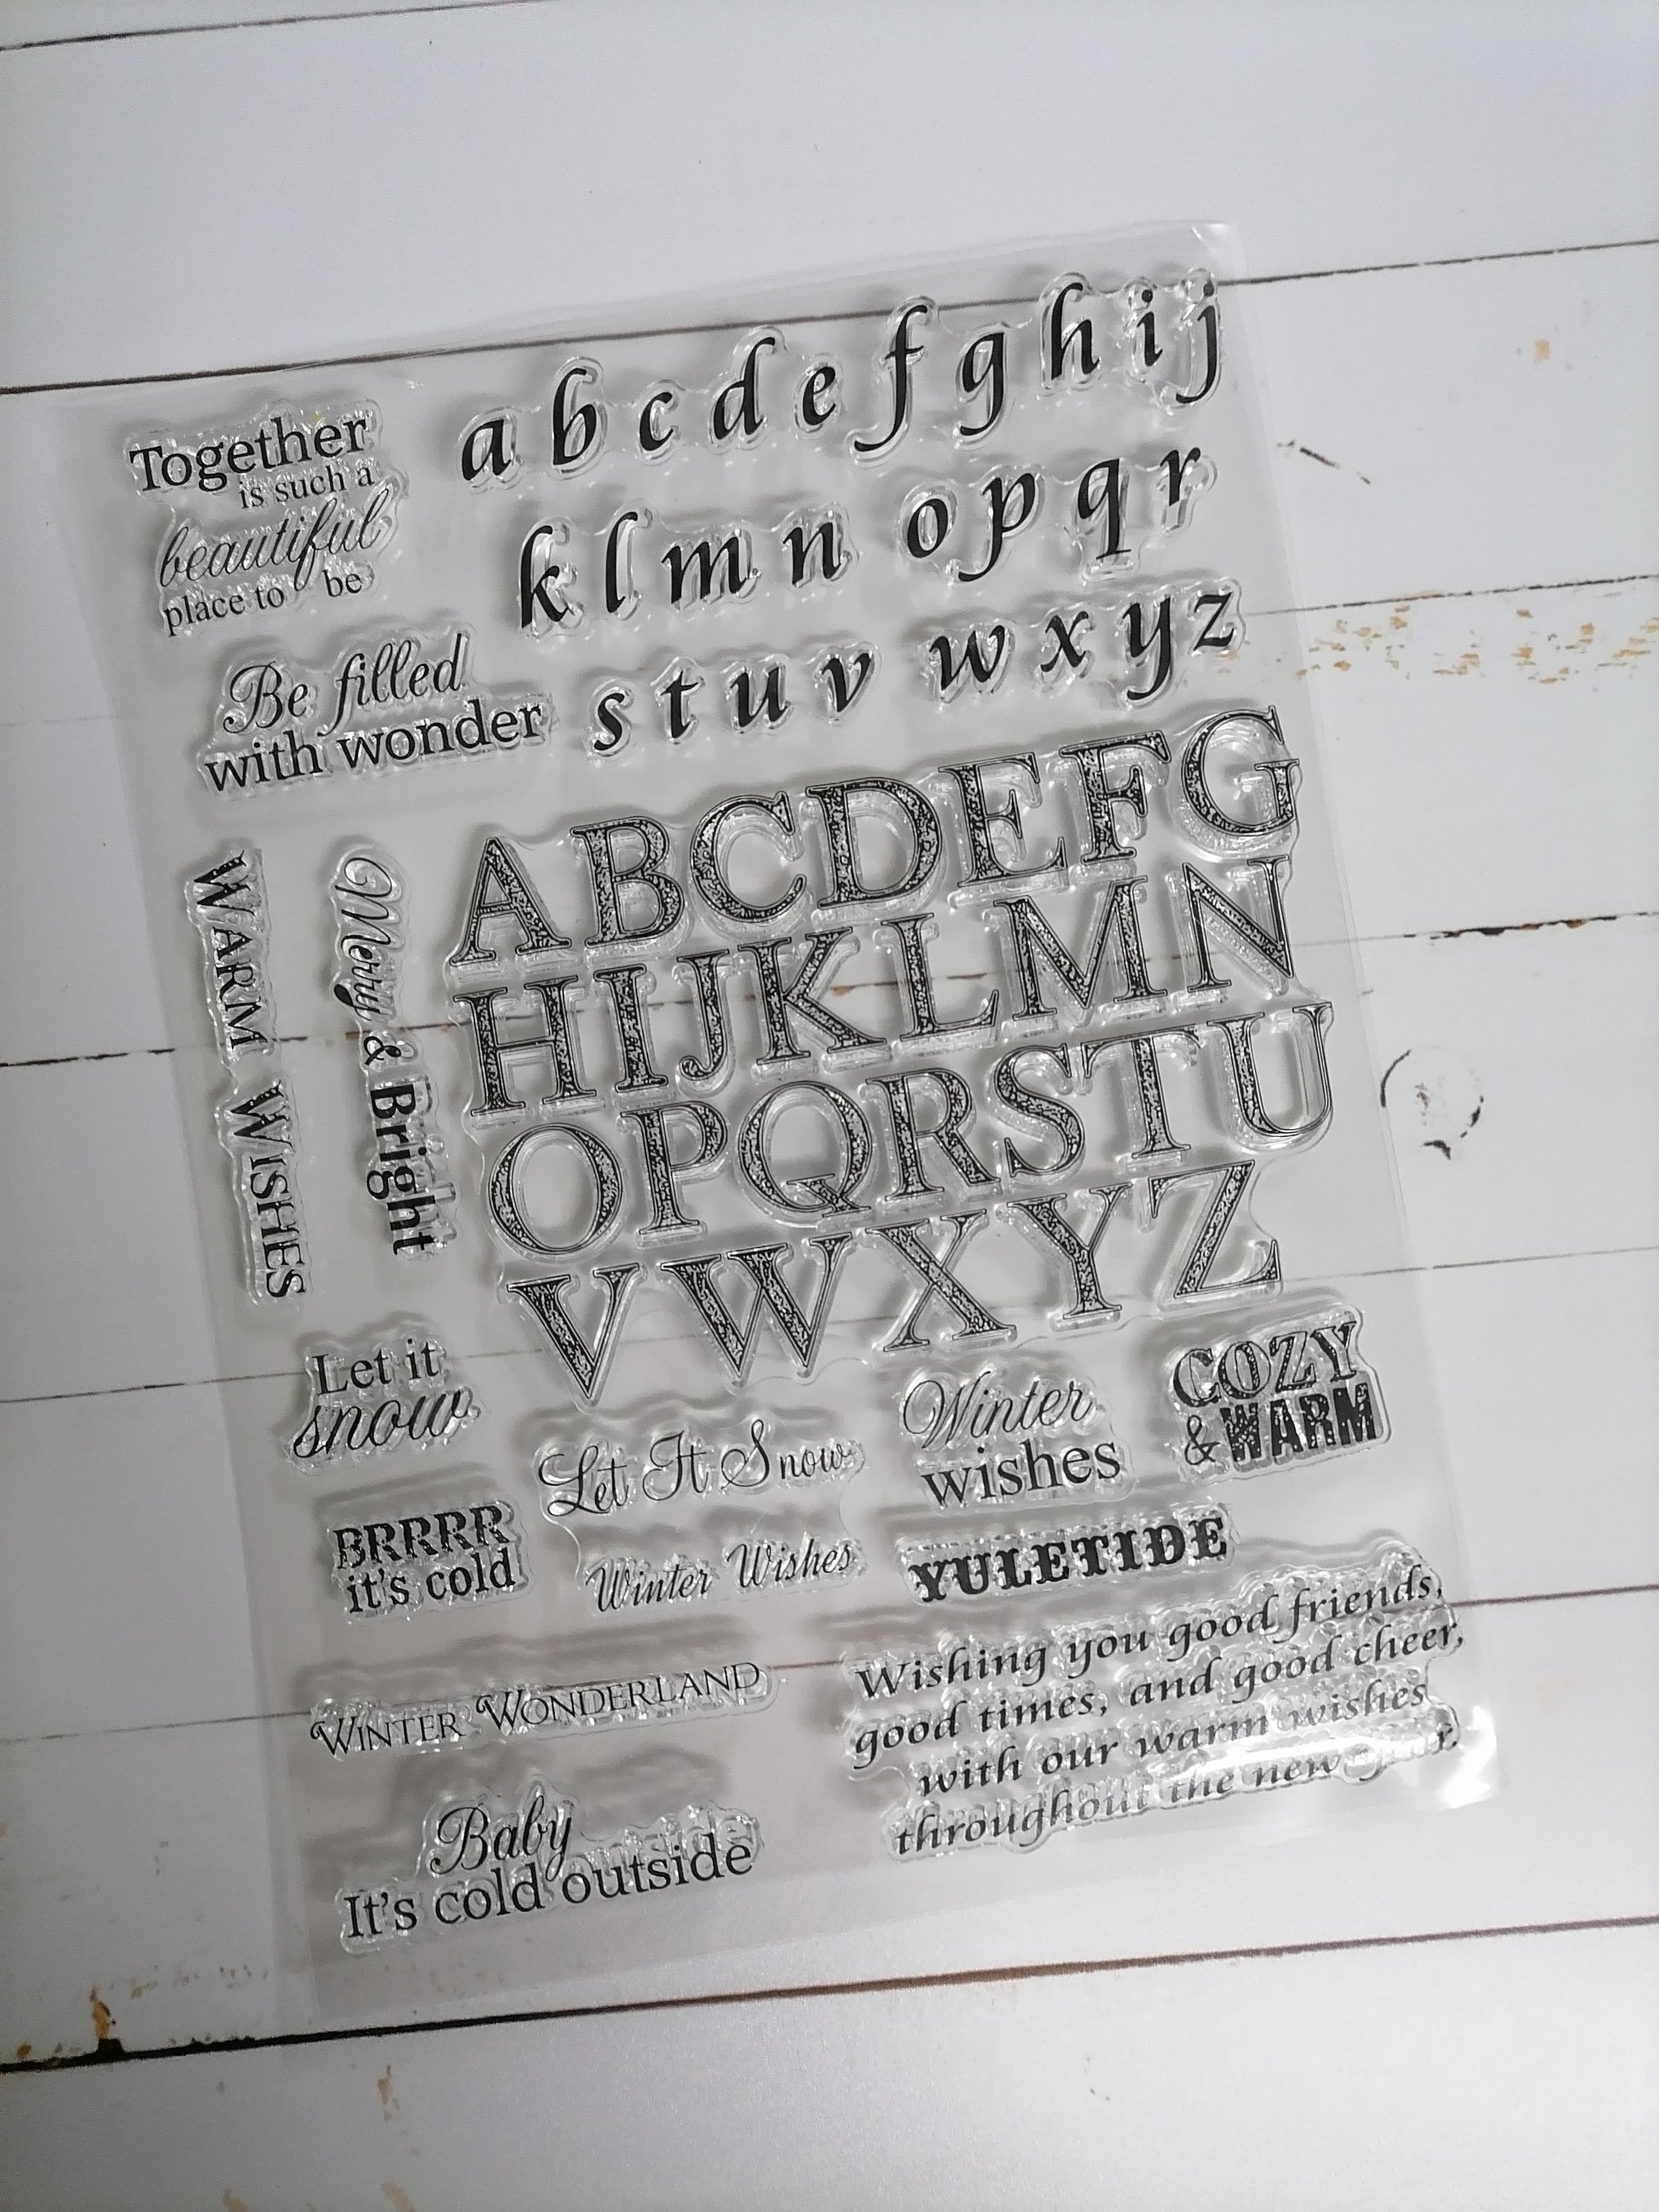 Together
is such a
beautiful
place to be
a b c d e f g h i j
k l m n o p q r
s t u v w x y z
Be filled
with wonder
WARM WISHES
Merry & Bright
ABCDEFG
HIJKLMN
OPQRSTU
VWXYZ
Let it
snow
Let It Snow
Winter
wishes
COZY
& WARM
BRRRR
it's cold
Winter Wishes
YULETIDE
WINTER WONDERLAND
Wishing you good friends,
good times, and good cheer,
with our warm wishes
throughout the new year.
Baby
It's cold outside